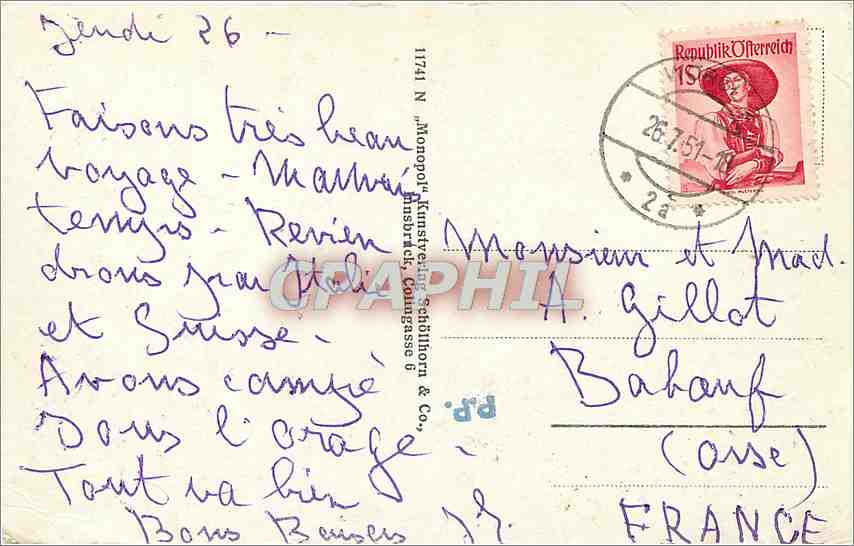 Jeudi 26 -
Faisons très beau
voyage - Mauvais
temps - Revien
drons par Italie
et Suisse.
Avons campé
sous l'orage.
Tout va bien
Bons Baisers
11741 N „Monopol“ Kunstverlag Schöllhorn & Co.,
Innsbruck, Colingasse 6
Republik Österreich
26.7.51-18
* 2a *
Monsieur et Mad.
A. Gillot
Babœuf
(Oise)
FRANCE
P.P.
CPAPHIL